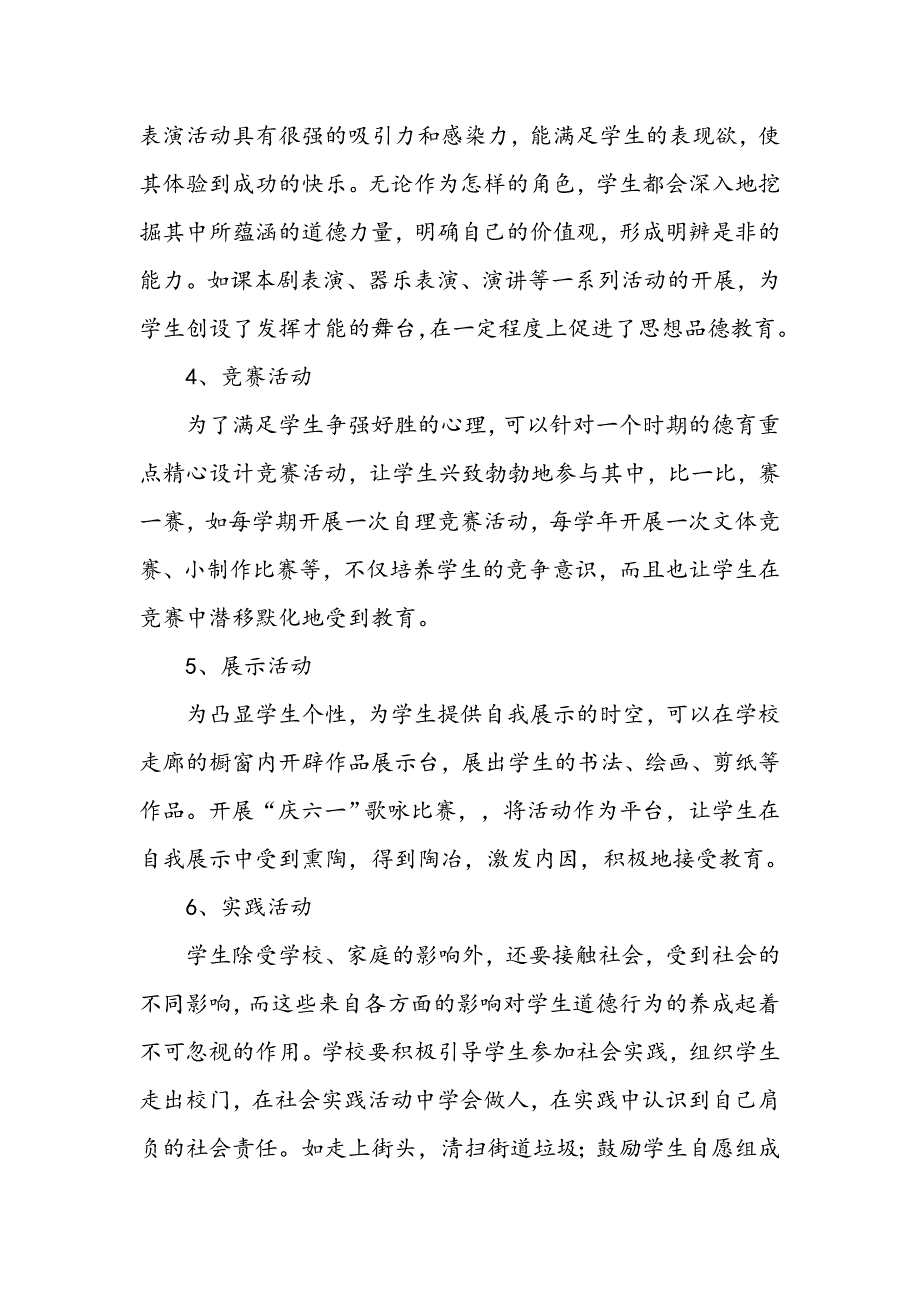 表演活动具有很强的吸引力和感染力，能满足学生的表现欲，使
其体验到成功的快乐。无论作为怎样的角色，学生都会深入地挖
掘其中所蕴涵的道德力量，明确自己的价值观，形成明辨是非的
能力。如课本剧表演、器乐表演、演讲等一系列活动的开展，为
学生创设了发挥才能的舞台，在一定程度上促进了思想品德教育。
4、竞赛活动
为了满足学生争强好胜的心理，可以针对一个时期的德育重
点精心设计竞赛活动，让学生兴致勃勃地参与其中，比一比，赛
一赛，如每学期开展一次自理竞赛活动，每学年开展一次文体竞
赛、小制作比赛等，不仅培养学生的竞争意识，而且也让学生在
竞赛中潜移默化地受到教育。
5、展示活动
为凸显学生个性，为学生提供自我展示的时空，可以在学校
走廊的橱窗内开辟作品展示台，展出学生的书法、绘画、剪纸等
作品。开展“庆六一”歌咏比赛，，将活动作为平台，让学生在
自我展示中受到熏陶，得到陶冶，激发内因，积极地接受教育。
6、实践活动
学生除受学校、家庭的影响外，还要接触社会，受到社会的
不同影响，而这些来自各方面的影响对学生道德行为的养成起着
不可忽视的作用。学校要积极引导学生参加社会实践，组织学生
走出校门，在社会实践活动中学会做人，在实践中认识到自己肩
负的社会责任。如走上街头，清扫街道垃圾；鼓励学生自愿组成